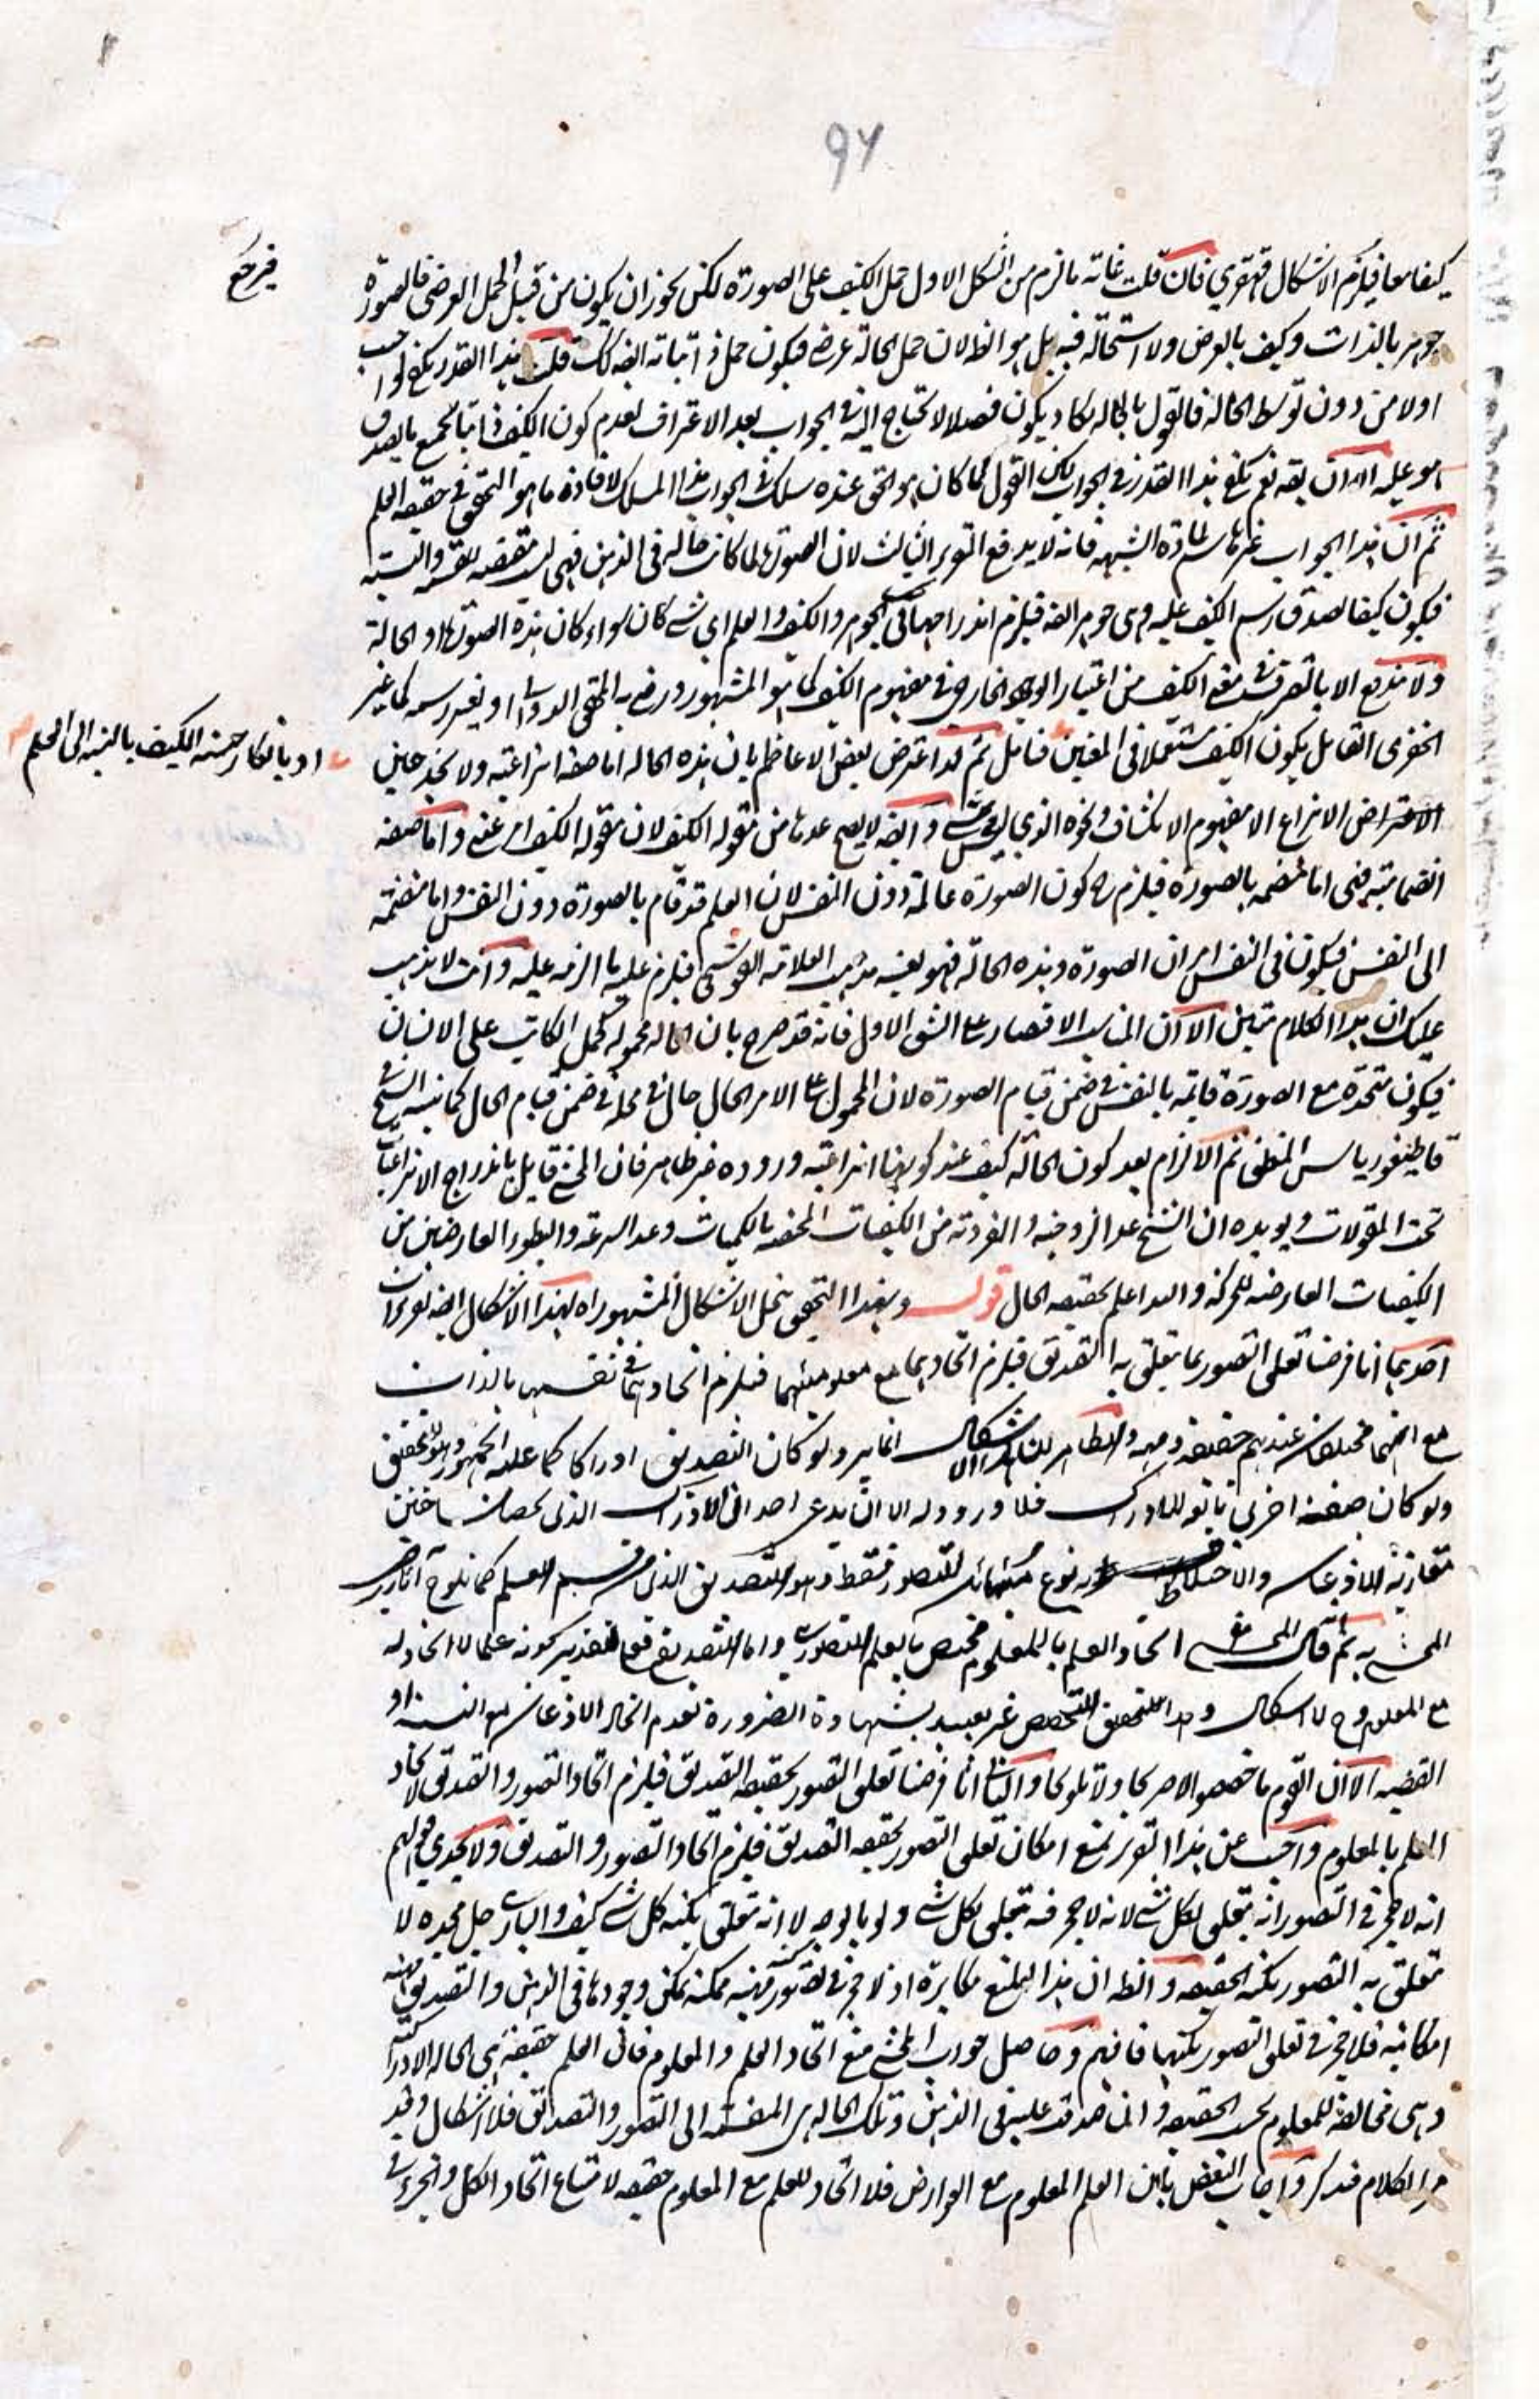 96
كيفا معا فيلزم الاشكال قهقري فان قلت غاية ما لزم من الشكل الاول حمل الكيف على الصورة لكن يجوز ان يكون من قبيل الحمل العرضي فالصورة
جوهر بالذات وكيف بالعرض ولا استحالة فيه بل هو الظ لان حمل الحالة عرضي فيكون حمل ذاتياته ايضه كك قلت هذا القدر يكفي
اولا من دون توسط الحالة فالقول بالحالة يكاد يكون فضلا لا تحتاج اليه في الجواب بعد الاعتراف بعدم كون الكيف ذاتيا لجميع ما يصدق
هو عليه الا ان يقه نعم يكفي هذا القدر في الجواب لكن القول لما كان هو الحق عنده سلك في الجواب هذا المسلك لافادة ما هو التحقيق في حقيقة العلم
ثم ان هذا الجواب غير حاسم لمادة الشبهة فانه لا يدفع التقرير الثالث لان الصورة لما كانت حالة في الذهن فهي ليست مقتضية للقسمة والنسبة
فيكون كيفا لصدق رسم الكيف عليه وهي جوهر ايضه فيلزم اندراجها في الجوهر والكيف والعلم اي شي كان سواء كان هذه الصورة او الحالة
ولا يندفع الا بالتصرف في معنى الكيف من اعتبار الوجود الخارجي في مفهوم الكيف كما هو المشهور ورضي به المحقق الدواني او بتغير رسمه كما غير
الخفري القائل بكون الكيف مستعملا في المعنيين فتامل ثم قد اعترض بعض الاعاظم بان هذه الحالة اما صفة انتزاعية ولا يخد حين
الاعتراض الانتزاع الا مفهوم الانكشاف ونحوه الذي ليس وايضه لا يصح عدها من مقولة الكيف لان مقولة الكيف واما صفة
انضمامية فهي اما منضمة بالصورة فيلزم ح كون الصورة عالمة دون النفس لان العلم قد قام بالصورة دون النفس واما منضمة
الى النفس فيكون في النفس امران الصورة وهذه الحالة فهو بعينه مذهب العلامة القوشجي فيلزم عليه ما الزمه عليه وانت لا يذهب
عليك ان هذا الكلام متين الا ان المناسب الاقتصار على الشق الاول فانه قد صرح بان الحالة محمولة كحمل الكاتب على الانسان
فيكون متحدة مع الصورة قائمة بالنفس في ضمن قيام الصورة لان المحمول على الامر الحال حال في محله في ضمن قيام الحال كما بينه الشيخ في
قاطيغورياس المنطق ثم الالزام بعدم كون الحالة كيف عند كونها انتزاعية وروده غير ظاهر فان المحشي قايل باندراج الانتزاعيات
تحت المقولات ويويده ان الشيخ عد الزوجية والفردية من الكيفيات المختصة بالكميات وعد السرعة والبطوء العارضين من
الكيفيات العارضة للحركة والله اعلم بحقيقة الحال قوله وبهذا التحقيق ينحل الاشكال المشهور اه لهذا الاشكال ايضه تقريران
احدهما انا فرضنا تعلق التصور بما يتعلق به التصديق فيلزم اتحادهما مع معلوميهما فيلزم اتحادهما في نفسهما بالذات
مع انهما مختلفان عندهم حقيقة وماهية والظاهر ان هذا الاشكال انما يرد لو كان التصديق ادراكا كما عليه الجمهور
ولو كان صفة اخرى تابعة للادراك فلا ورود له الا ان يدعى احد ان الادراك الذي يحصل حين
مقارنة الاذعان والاختلاط به نوع مباين للتصور فقط وهو التصديق الذي هو قسم العلم كما يلوح آثار رضى
المحشي به ثم قال المحشي اتحاد العلم بالمعلوم مختص بالعلم التصوري واما التصديق فعلى تقدير كونه علما لا اتحاد له
مع المعلوم وح لا اشكال وهذا التحقيق التخصيص غير بعيد بشهادة الضرورة بعدم اتحاد الاذعان مع النسبة او
القضية الا ان القوم ما خصصوا لا صريحا ولا تلويحا والثاني انا فرضنا تعلق التصور بحقيقة التصديق فيلزم اتحاد التصور والتصديق لاتحاد
العلم بالمعلوم واجيب عن هذا التقرير بمنع امكان تعلق التصور بحقيقة التصديق فيلزم اتحاد التصور والتصديق ولا يجدي قولهم
انه لا حجر في التصور انه يتعلق بكل شي لانه لا حجر فيه يتعلق بكل شي ولو بالوجه لا انه يتعلق بكنه كل شي كيف والباري جل مجده لا
يتعلق به التصور بكنه الحقيقة والظ ان هذا المنع مكابرة اذ لا حجر في تصور كنه ماهية ممكنة يمكن وجودها في الذهن والتصديق ماهية
امكانية فلا حجر في تعلق التصور بكنهها فافهم وحاصل جواب المحشي منع اتحاد العلم والمعلوم فان العلم حقيقة هي الحالة الادراكية
وهي مخالفة للمعلوم بحسب الحقيقة وان صدقت عليه في الذهن وتلك الحالة هي المنقسمة الى التصور والتصديق فلا اشكال وقد
مر الكلام فتذكر واجاب البعض بان العلم المعلوم مع العوارض فلا اتحاد للعلم مع المعلوم حقيقة لامتناع اتحاد الكل والجزء في
فيرجع
او بانكار جنسية الكيف بالنسبة الى العلم